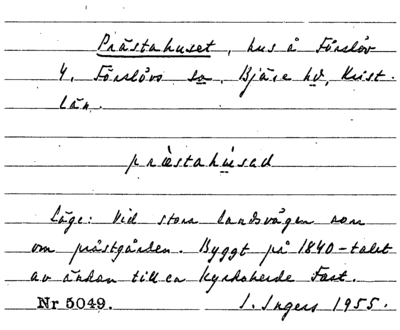 Prästahuset, hus å Förslöv
4, Förslövs sn, Bjäre hd, Krist.
län.
præstahúsad
Läge: Vid stora landsvägen som
om prästgården. Byggt på 1840-talet
av änkan till en kyrkoherde Fast.
Nr 5049. I. Ingers 1955.